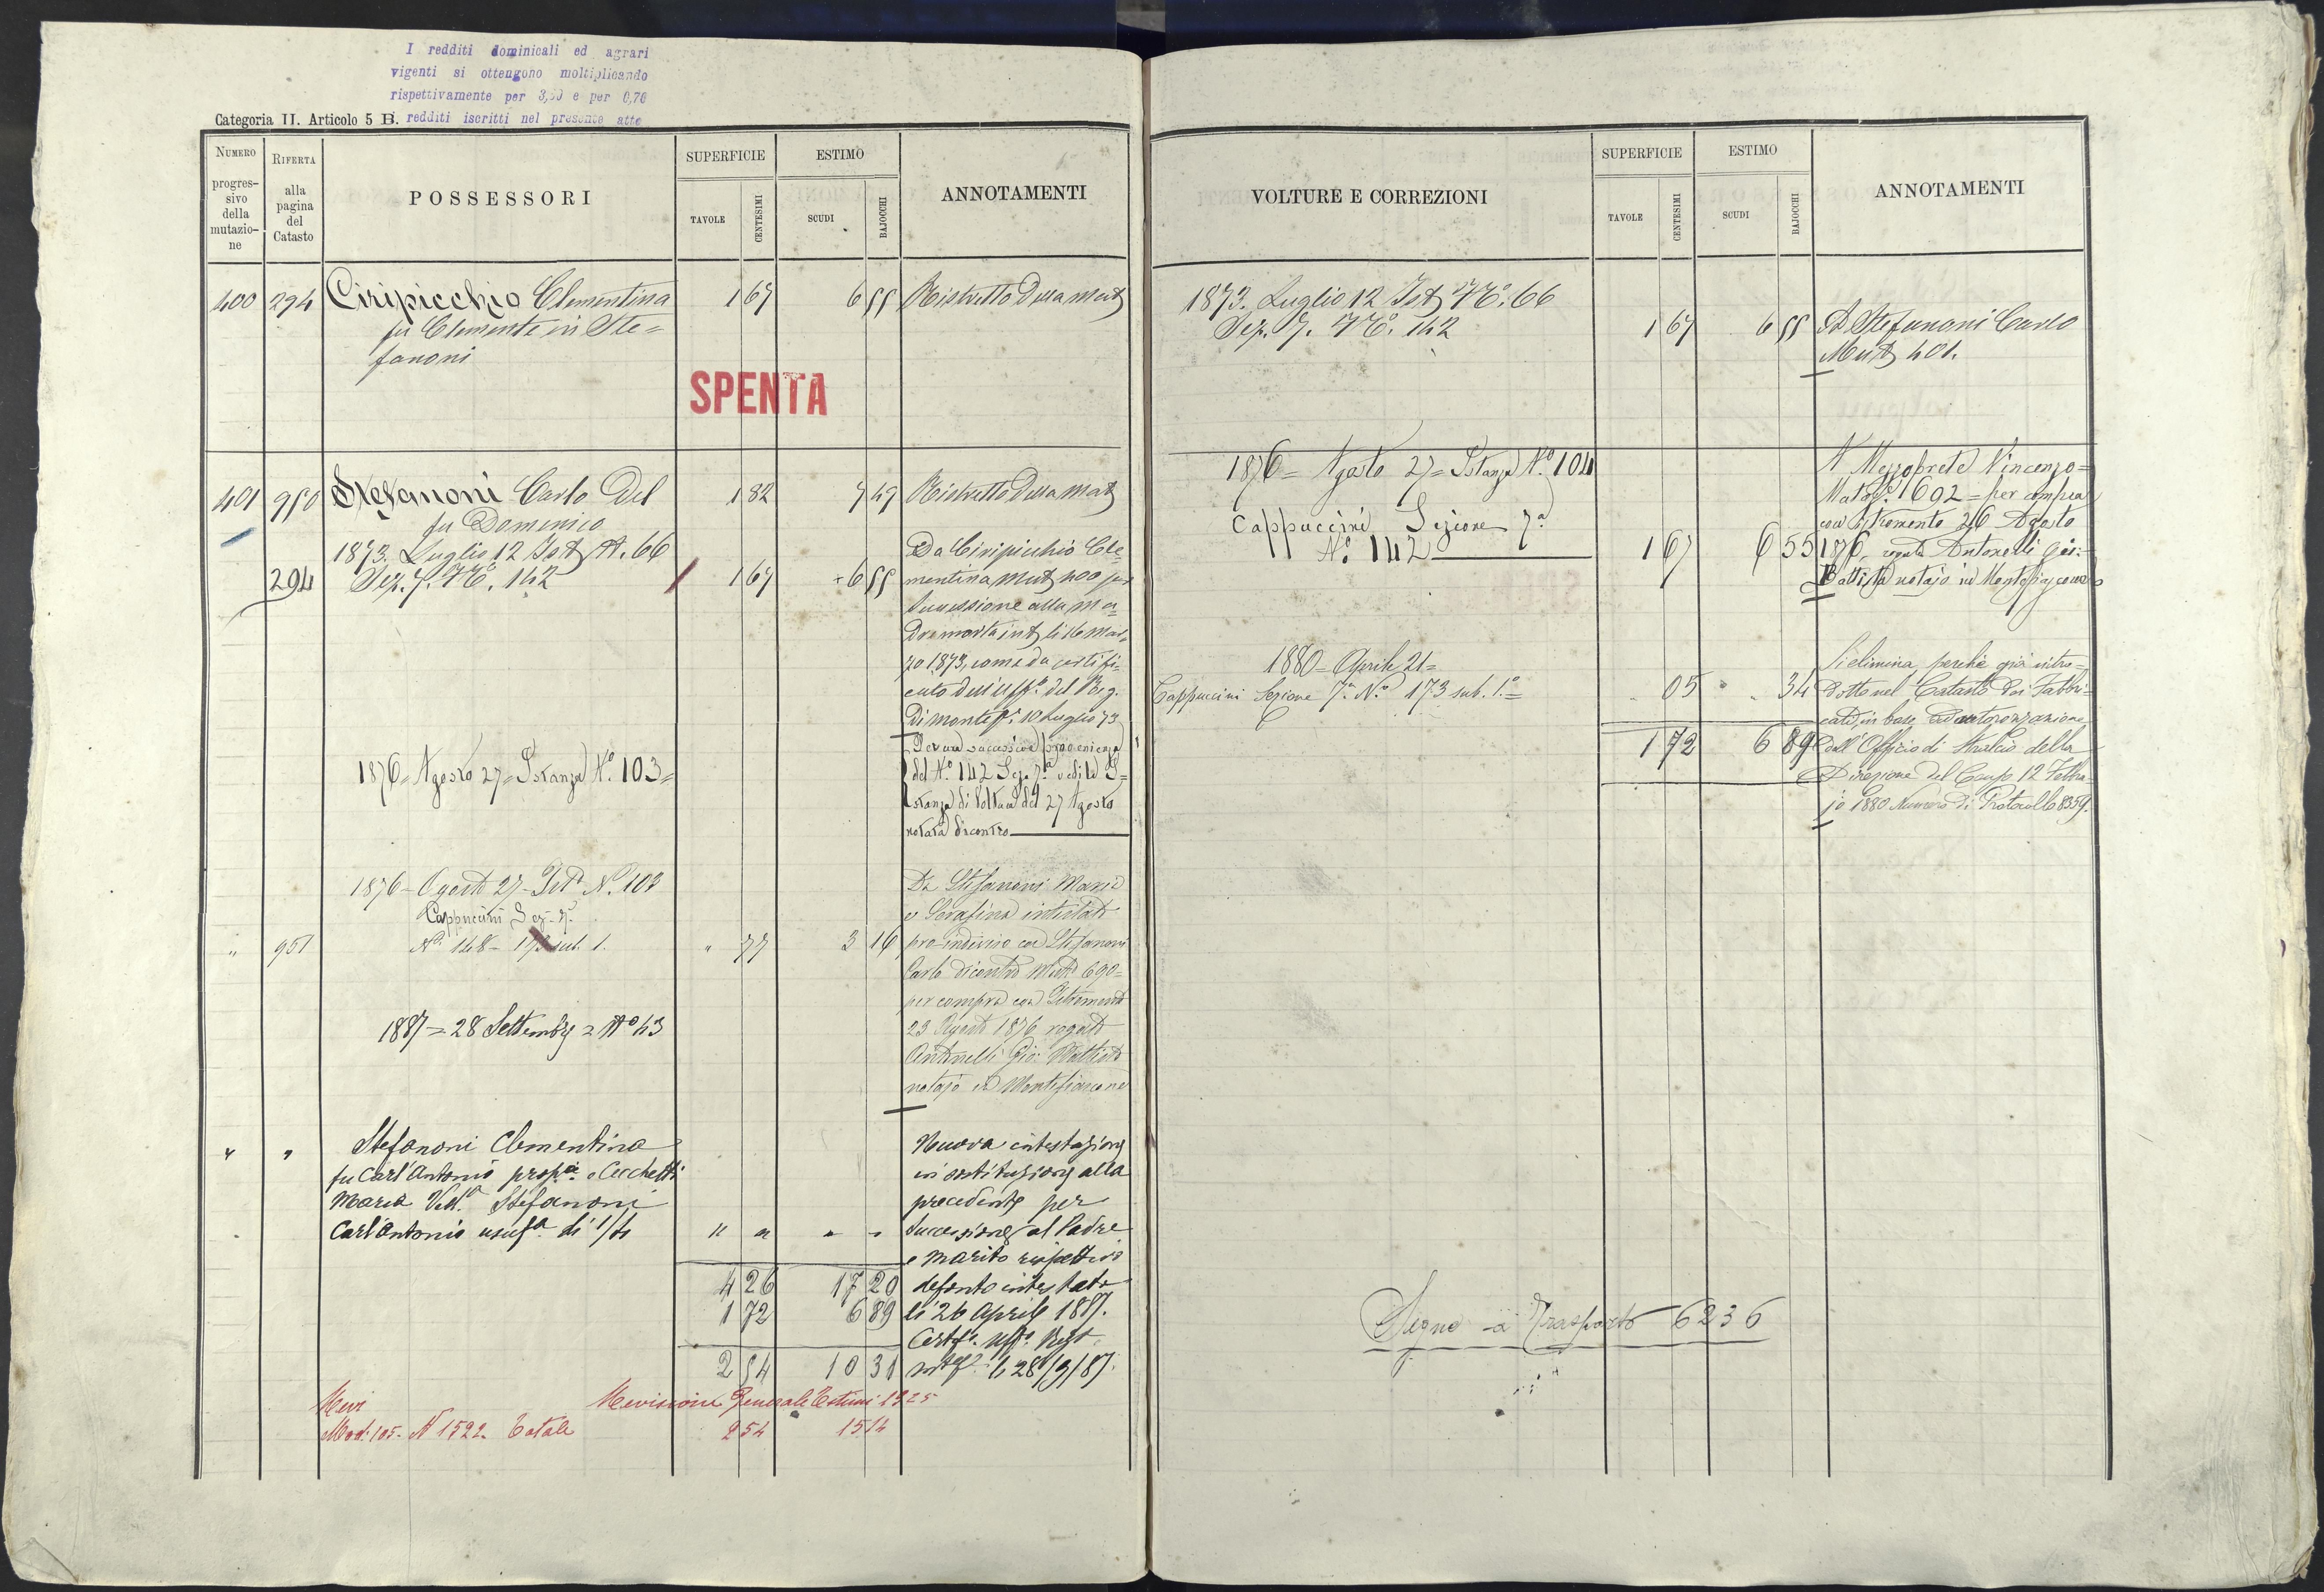 I redditi dominicali ed agrari
vigenti si ottengono moltiplicando
rispettivamente per 3,50 e per 0,70
Categoria II. Articolo 5 B. redditi iscritti nel presente atto
NUMERO progressivo della mutazione
RIFERTA alla pagina del Catasto
POSSESSORI
SUPERFICIE
TAVOLE
CENTESIMI
ESTIMO
SCUDI
BAJOCCHI
ANNOTAMENTI
400 294 Ciripicchio Clementina 1 67 6 55 Ristretto della Mat
fu Clemente in Ste=
fanoni
SPENTA
401 950 Stefanoni Carlo del 1 82 7 49 Ristretto della Mat
fu Domenico
1873. Luglio 12 Ist N. 66 Da Ciripicchio Cle=
294 Sez. 7. N. 142 1 67 + 6 55 mentina Mat 400 per
successione alla ma=
dre morta int li 16 Mar=
zo 1873, come da certifi=
cato dell'uff. del Reg.
di Montef. 10 Luglio 73
Per una successiva provenienza
del N.º 142 Sez. 7.ª vedi la I=
1876 = Agosto 27 = Istanza N.º 103 =
stanza di Voltura del 27 Agosto
notata dicontro
1876 - Agosto 27 - Ist. N. 103
Da Stefanoni Maria
Cappuccini Sez. 7.ª
e Serafina intestate
" 951 N.º 148 - 173 sub. 1. " 77 3 16 pro-indiviso con Stefanoni
Carlo dicontro Mat. 690 =
per compra con Istromento
1887 = 28 Settembre = N.º 43
23 Agosto 1876 rogato
Antonelli Gio: Battista
notajo in Montefiascone
" " Stefanoni Clementina
Nuova intestazione
fu Carl'Antonio prop.ª e Cecchetti
in sostituzione alla
Maria Ved.ª Stefanoni
precedente per
Carl'Antonio usuf.ª di 1/4 " " " " successione al Padre
e Marito rispettivo
4 26 17 20 defonto intestato
1 72 6 89 li 26 Aprile 1887.
Certf.º Uff.º Regt.
2 54 10 31 Mtf. li 28/9/87.
Revisione Generale Estimi 1925
Mod. 105 - N 1522. Totale 2 54 15 14
VOLTURE E CORREZIONI
SUPERFICIE
TAVOLE
CENTESIMI
ESTIMO
SCUDI
BAJOCCHI
ANNOTAMENTI
1873. Luglio 12 Ist N.º 66
Sez. 7. N.º 142 1 67 6 55 A Stefanoni Carlo
Mat 401.
1876 = Agosto 27 = Istanza N.º 104
A Mezzoprete Vincenzo =
Mat. 1692 = per compra
Cappuccini Sezione 7ª
con Istromento 26 Agosto
N.º 142 1 67 6 55 1876 rogato Antonelli Gio:
Battista notajo in Montefiascone
1880 = Aprile 21 =
Si elimina, perché già intro=
Cappuccini Sezione 7.ª N.º 173 sub. 1.º = 05 34 dotto nel Catasto dei Fabbri=
cati, in base ad autorizzazione
1 72 6 89 dell'Officio di Stralcio della
Direzione del Censo 12 Febbra=
jo 1880 Numero di Protocollo 8359.
Segue a Trasporto 6236